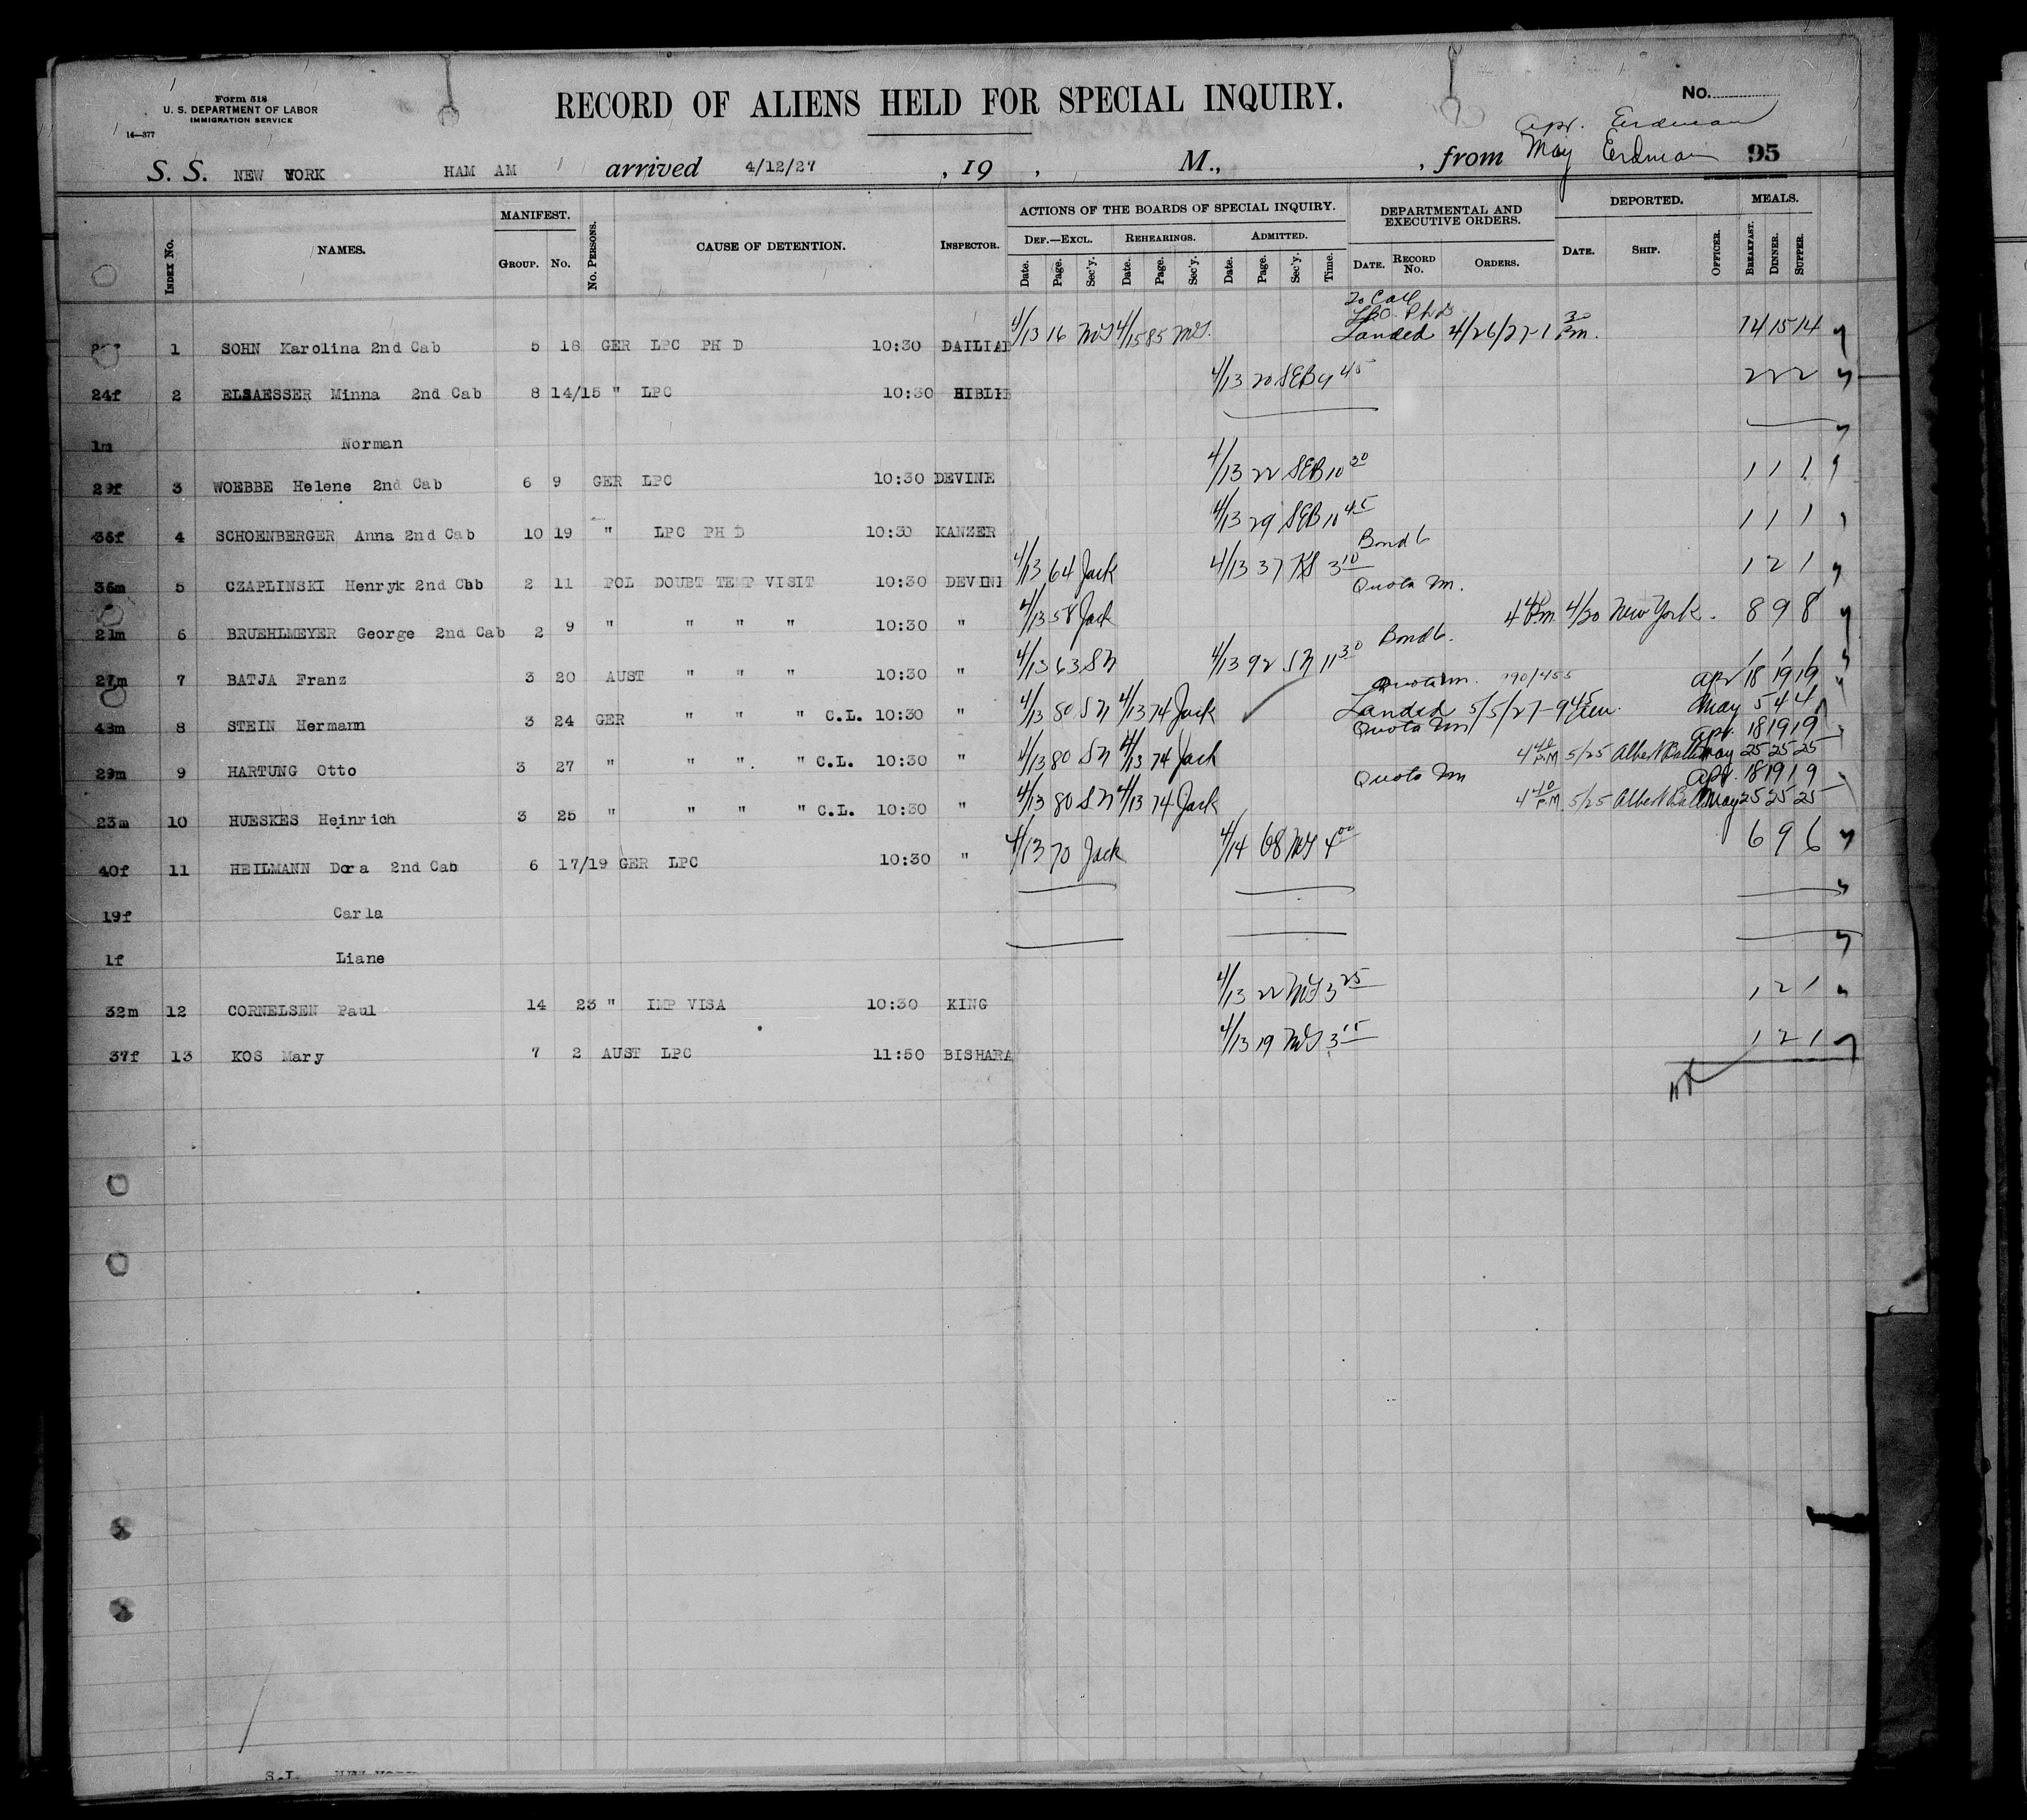 Form 518
U. S. DEPARTMENT OF LABOR
IMMIGRATION SERVICE
14—377
RECORD OF ALIENS HELD FOR SPECIAL INQUIRY.
No.
Apr. Erdman
S. S. NEW YORK HAM AM arrived 4/12/27 , 19 , M., , from May Erdman 95
INDEX No. NAMES. MANIFEST. GROUP. No. No. PERSONS. CAUSE OF DETENTION. INSPECTOR. ACTIONS OF THE BOARDS OF SPECIAL INQUIRY. DEF.—EXCL. REHEARINGS. ADMITTED. Date. Page. Sec'y. Date. Page. Sec'y. Date. Page. Sec'y. Time. DEPARTMENTAL AND EXECUTIVE ORDERS. DATE. RECORD No. ORDERS. DEPORTED. DATE. SHIP. OFFICER. MEALS. BREAKFAST. DINNER. SUPPER.
1 SOHN Karolina 2nd Cab 5 18 GER LPC PH D 10:30 4/13 16 4/15 85 Landed 4/26/27-1 30 Pm. 14 15 14
24f 2 ELSAESSER Minna 2nd Cab 8 14/15 " LPC 10:30 4/13 20 SEB 9 45 2 2 2
1m Norman
29f 3 WOEBBE Helene 2nd Cab 6 9 GER LPC 10:30 DEVINE 4/13 22 SEB 10 30 1 1 1
36f 4 SCHOENBERGER Anna 2nd Cab 10 19 " LPC PH D 10:30 KANZER 4/13 29 SEB 10 45 1 1 1
36m 5 CZAPLINSKI Henryk 2nd Cab 2 11 POL DOUBT TEMP VISIT 10:30 DEVINE 4/13 64 Jack 4/13 37 3 10 Bond 6 1 2 1
21m 6 BRUEHLMEYER George 2nd Cab 2 9 " " " " 10:30 " 4/13 58 Jack Quota Im. 4 40 Pm 4/20 New York. 8 9 8
27m 7 BATJA Franz 3 20 AUST " " " 10:30 " 4/13 63 SN 4/13 92 SN 11 30 Bond 6. 1 1 1
43m 8 STEIN Hermann 3 24 GER " " " C.L. 10:30 " 4/13 80 SN 4/13 74 Jack Quota Im. Landed 5/5/27-9 45 Apr 18 19 19 May 5 4 4
29m 9 HARTUNG Otto 3 27 " " " " C.L. 10:30 " 4/13 80 SN 4/13 74 Jack Quota Im 4 40 P.M 5/25 Albert Ballin Apr. 18 19 19 May 25 25 25
23m 10 HUESKES Heinrich 3 25 " " " " C.L. 10:30 " 4/13 80 SN 4/13 74 Jack Quota Im 4 40 P.M 5/25 Albert Ballin Apr. 18 19 19 May 25 25 25
40f 11 HEILMANN Dora 2nd Cab 6 17/19 GER LPC 10:30 " 4/13 70 Jack 4/14 68 4 00 6 9 6
19f Carla
1f Liane
32m 12 CORNELSEN Paul 14 23 " IMP VISA 10:30 KING 4/13 22 3 25 1 2 1
37f 13 KOS Mary 7 2 AUST LPC 11:50 BISHARA 4/13 19 3 15 1 2 1